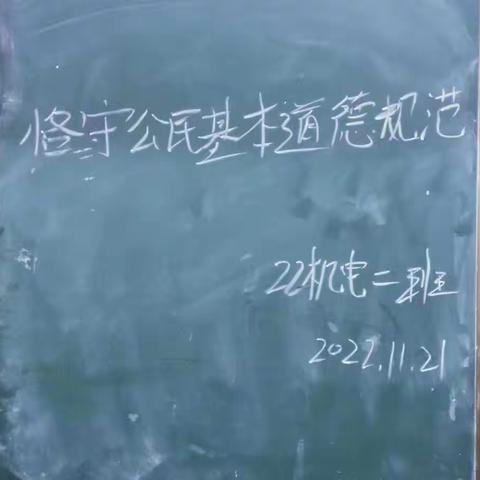 恪守公民基本道德规范
22机电二班
2022.11.21